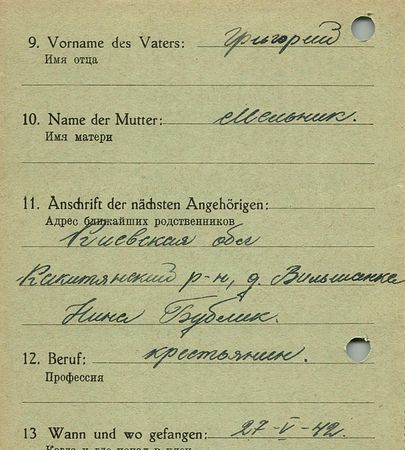 9. Vorname des Vaters: Григорий
Имя отца
10. Name der Mutter: Мельник.
Имя матери
11. Anschrift der nächsten Angehörigen:
Адрес ближайших родственников
Киевская обл
р-н, д. Вильшанка
Нина Бублик.
12. Beruf: крестьянин.
Профессия
13 Wann und wo gefangen: 27-V-42.
Когда и где попал в плен